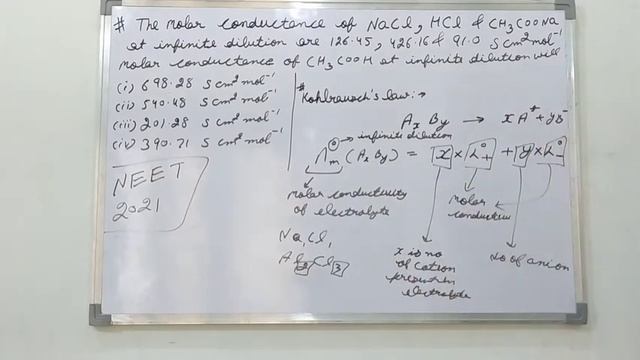 # The molar conductance of NaCl, HCl & CH₃COONa
at infinite dilution are 126.45, 426.16 & 91.0 S cm² mol⁻¹
molar conductance of CH₃COOH at infinite dilution will
(i) 698.28 S cm² mol⁻¹
(ii) 540.48 S cm² mol⁻¹
(iii) 201.28 S cm² mol⁻¹
(iv) 390.71 S cm² mol⁻¹
NEET
2021
# Kohlrausch's law :→
AₓBy → xA⁺ + yB⁻
→ infinite dilution
Λ°m (AₓBy) = x × λ°₊ + y × λ°₋
molar conductivity
of electrolyte
molar
Na₁Cl₁
Cl 3
x is no
of cation
present in
electrolyte
no of anion